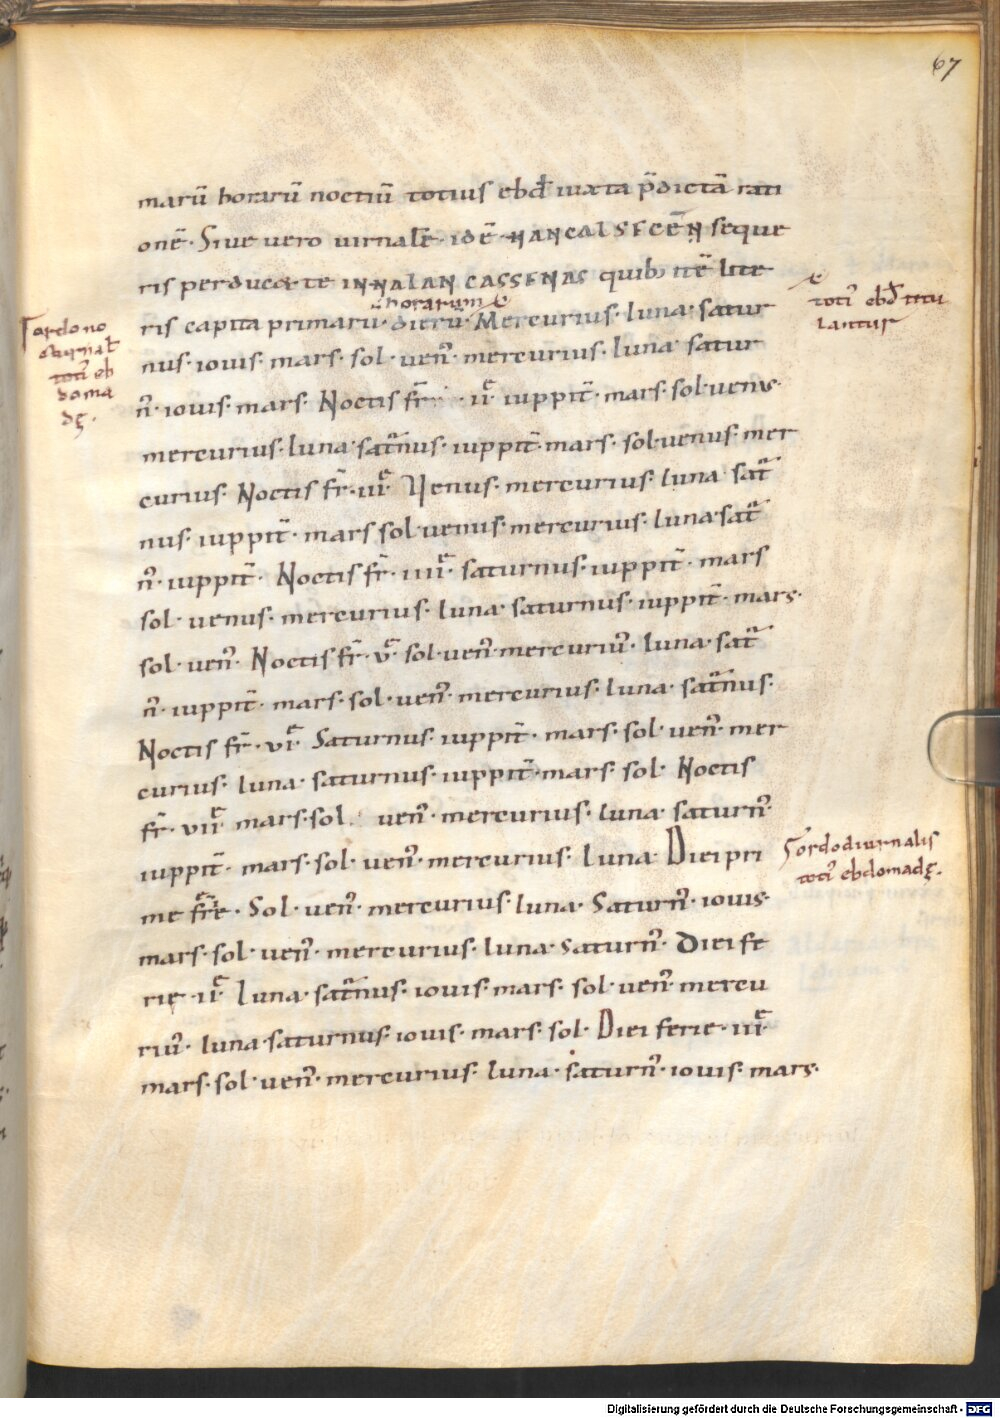 67
marū horarū noctiū totius ebđ iuxta p̄dictā rati
onē. Siue uero uirnalē idē NANCALSFCĒN seque
ris perducat te INNALAN CASSENAS quib; itē lite
horarum
ris capita primarū dierū Mercurius luna satur
toti ebđ titu
lantur
ordo no
cturnal̄
toti eb
doma
dę.
nus iouis mars. sol. uen̄ mercurius. luna satur
n̄ iouis mars. Noctis fr̄ ii iuppit̄ mars. sol. uenus.
mercurius. luna satn̄us. iuppit̄. mars. sol. uenus. mer
curius. Noctis fr̄. iii Uenus. mercurius. luna sat̄
nus iuppit̄. mars sol uenus. mercurius. luna. sat̄
n̄. iuppit̄. Noctis fr̄. iiii saturnus. iuppit̄. mars
sol. uenus. mercurius. luna. saturnus. iuppit̄. mars.
sol. uen̄. Noctis fr̄. v sol. uen̄ mercuriu᷒. luna. sat̄
n̄. iuppit̄. mars. sol. uen̄. mercurius. luna. satn̄us.
Noctis fr̄. vi Saturnus. iuppit̄. mars. sol. uen̄. mer
curius. luna. saturnus. iuppit̄. mars. sol. Noctis
fr̄. vii mars. sol. uen̄. mercurius. luna saturn̄.
iuppit̄. mars. sol. uen̄. mercurius. luna. Diei pri
ordo diurnalis
toti ebdomadę.
me fr̄e. Sol. uen̄. mercurius. luna. Saturn̄. iouis.
mars. sol. uen̄. mercurius. luna. saturn̄. Diei fe
rię. ii Luna. satn̄us. iouis. mars. sol. uen̄. mercu
riu᷒. luna. saturnus. iouis. mars. sol. Diei ferie. iii
mars. sol. uen̄. mercurius. luna. saturn̄. iouis. mars.
Digitalisierung gefördert durch die Deutsche Forschungsgemeinschaft - DFG